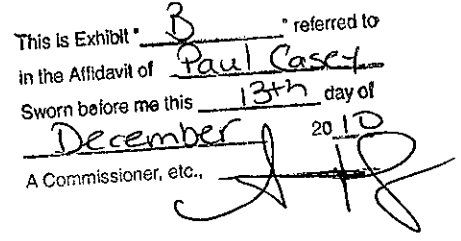 This is Exhibit " B " referred to
in the Affidavit of Paul Casey
Sworn before me this 13th day of
December 2010
A Commissioner, etc.,